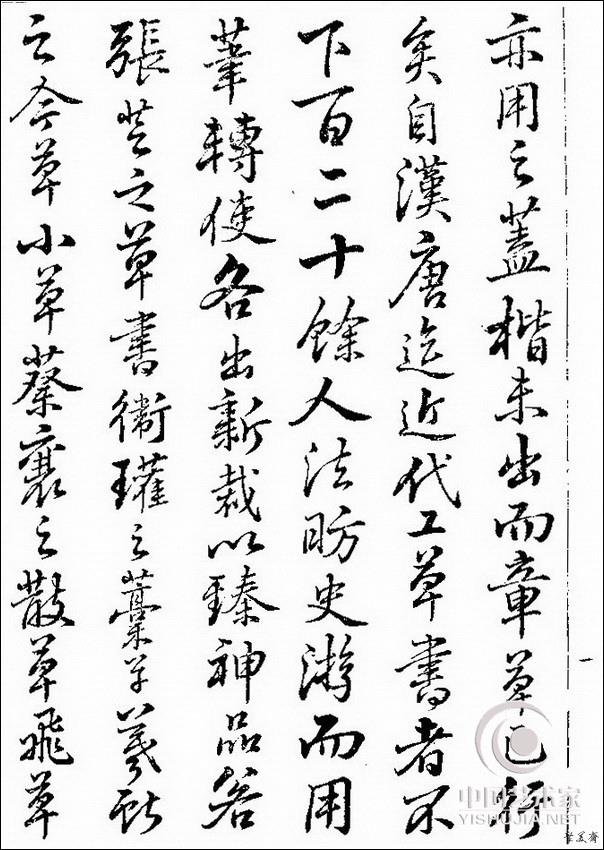 亦用之蓋楷未出而章草已行
矣自漢唐迄近代工草書者不
下百二十餘人法昉史游而用
筆轉使各出新裁以臻神品若
張芝之草書衛瓘之藁草羲獻
之今草小草蔡襄之散草飛草
一
中国艺术家
YISHUJIA.NET